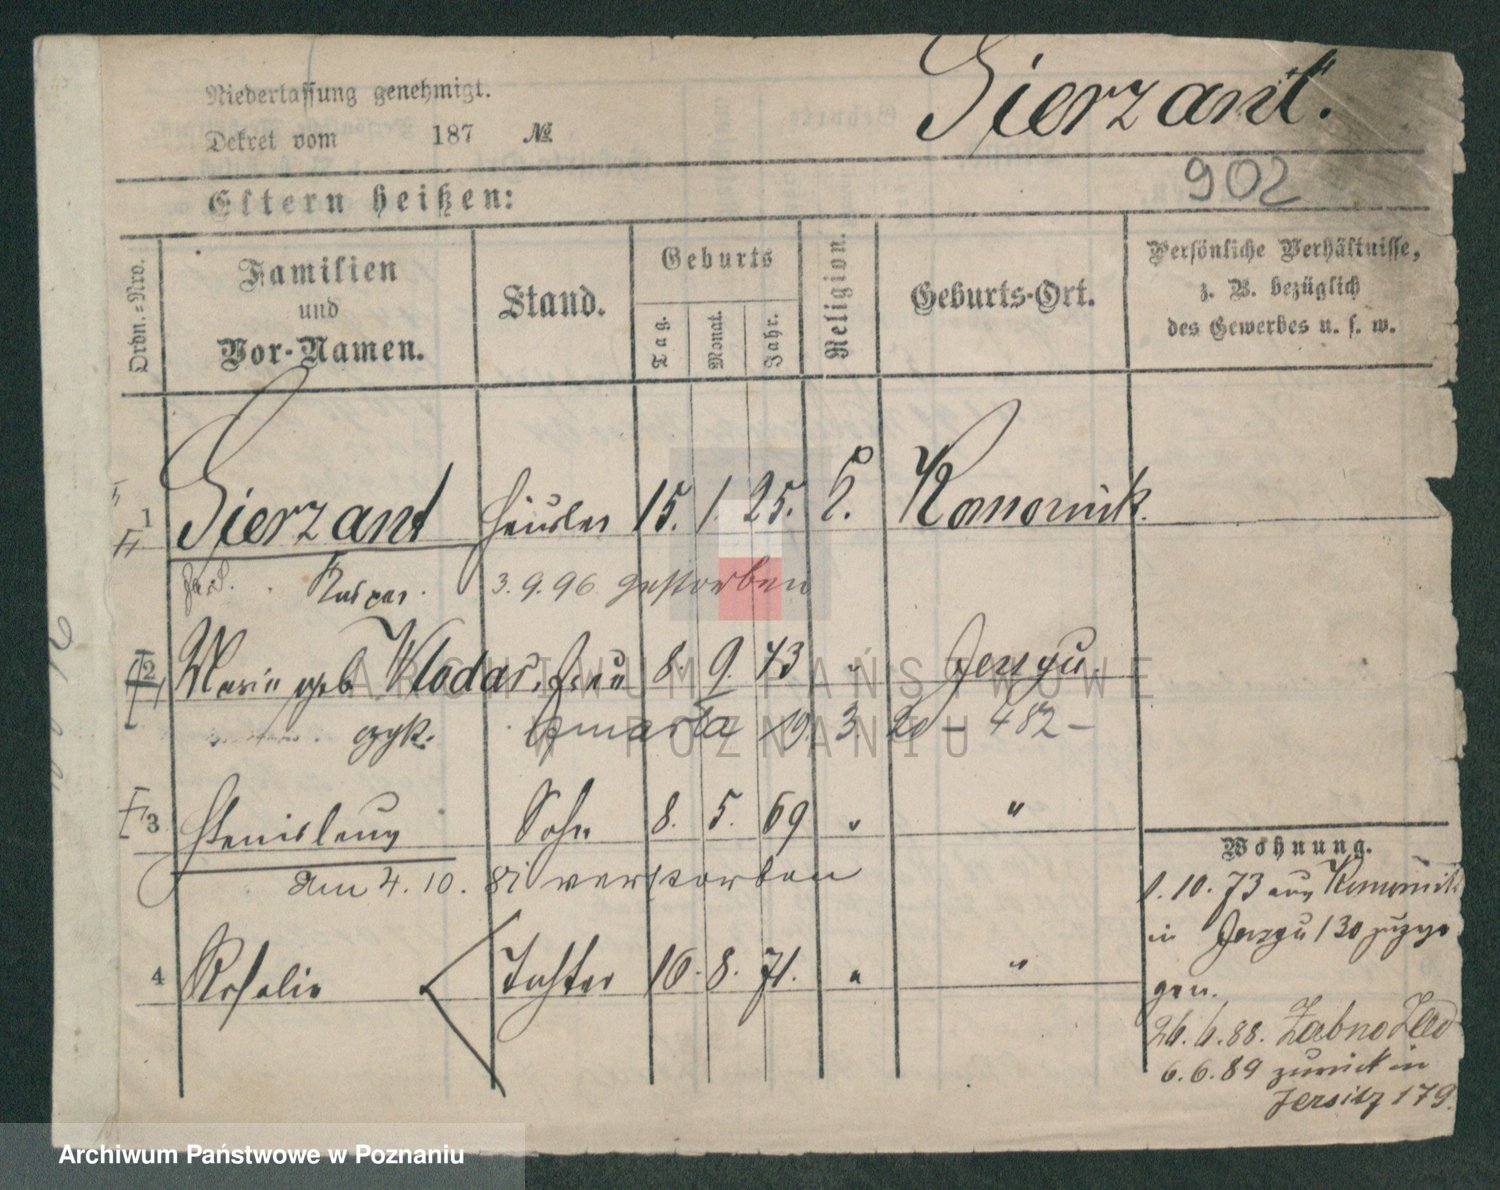 Sierzant.
Niederlassung genehmigt.
Dekret vom 187 №
902
Eltern heißen:
Ordn.-Nro.
Familien und Vor-Namen.
Stand.
Geburts
Tag.
Monat.
Jahr.
Religion.
Geburts-Ort.
Persönliche Verhältnisse,
z. B. bezüglich
des Gewerbes u. s. w.
1 Sierzant Häusler 15. 1. 25. k. Komornik.
Kaspar. 3.9.96 gestorben
2 Maria geb Wlodar- Frau 8. 9. 43 " Jerzyn.
czyk. umarła 19 3 20 – 482 –
3 Stanislaus Sohn 8. 5. 69 " "
am 4. 10. 81 verstorben
4 Rosalie Tochter 16. 8. 71. " "
Wohnung.
1. 10. 73 aus Komornik
in Jerzyn 130 gezo
gen.
26. 6. 88. Zabno
6. 6. 89 zurück in
Jersitz 179.
ARCHIWUM PAŃSTWOWE
W POZNANIU
Archiwum Państwowe w Poznaniu